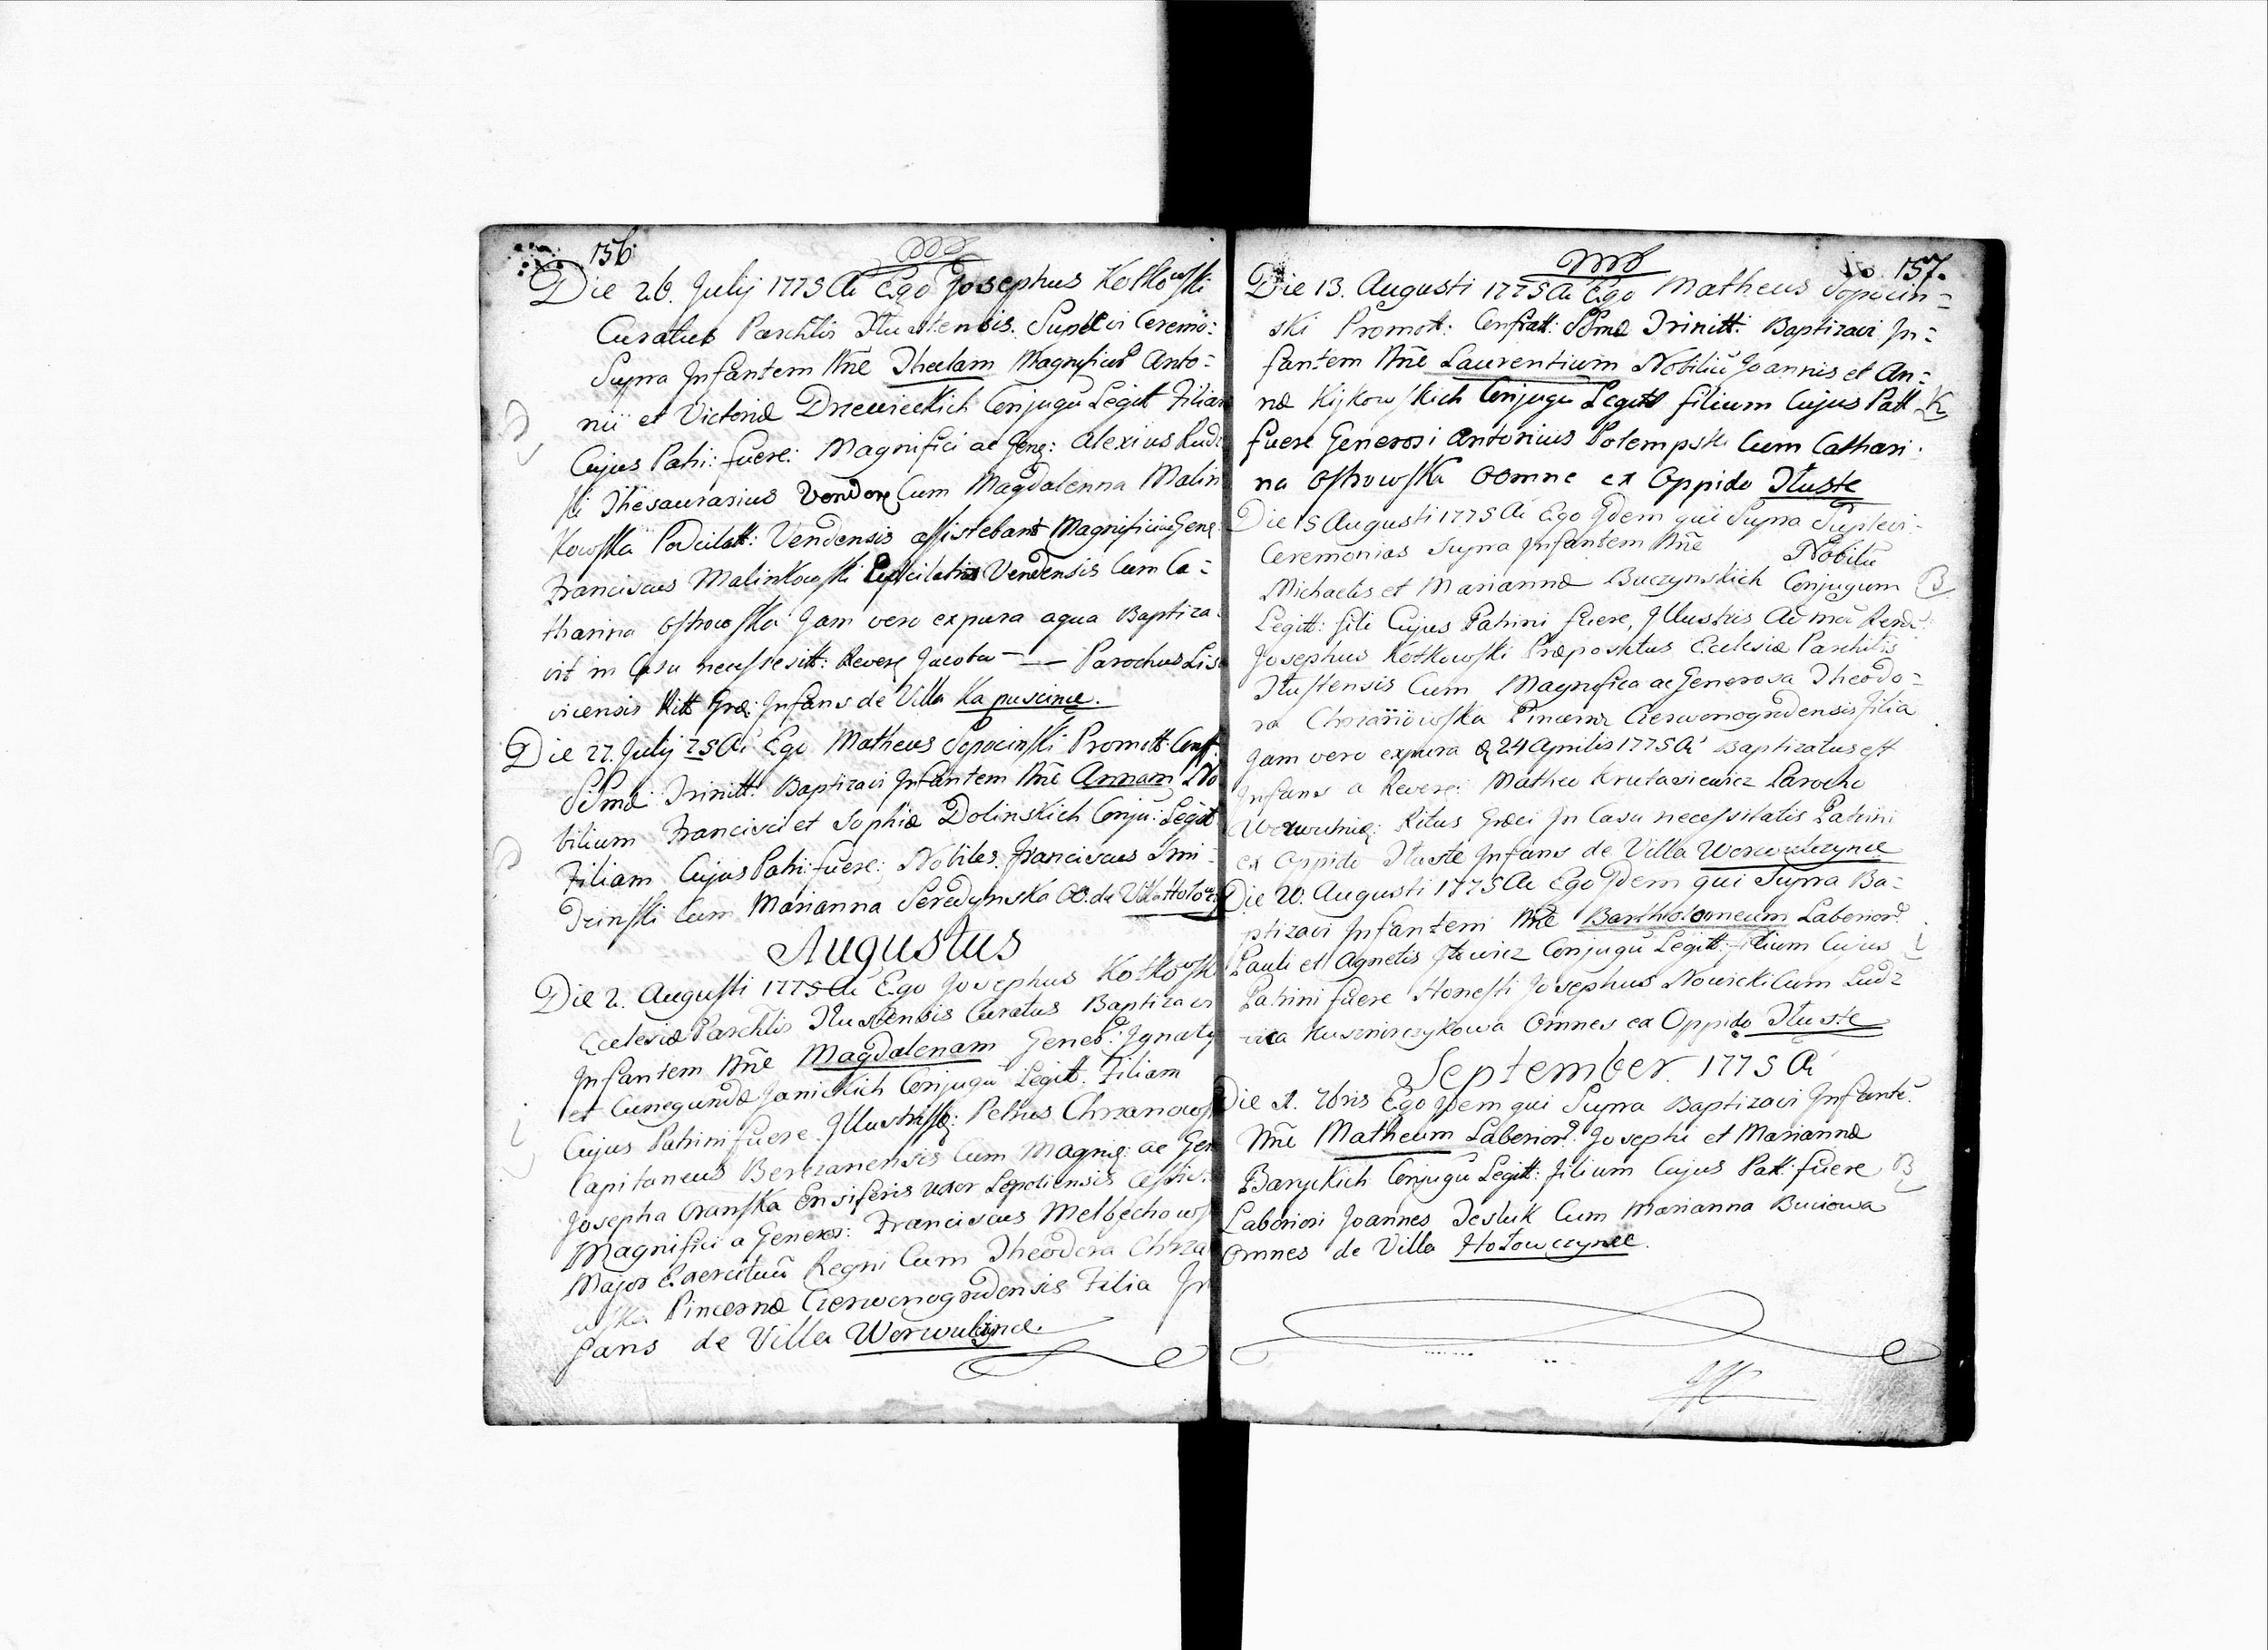 156
Die 26. Julij 1775 Ai Ego Josephus Kotkowski
Curatus Parchlis Tłustensis. Suplevi Ceremo:
Supra Infantem Nñe Theclam Magnificor Anto:
nii et Victoriæ Drzewieckich Conjugũ Legit Filiam
Cujus Patri: fuere: Magnifici ac Genẹ: Alexius Rud
ski Thesaurarius Cum Magdalenna Malin
kowska Vendensis assistebant Magnifici ac Gene:
Franciscus Malinkowski Vendensis Cum Ca=
tharina Ostrowska Jam vero ex pura aqua Baptiza
vit in Casu necessitt: Revere Jacobus — — Parochus Lis
vicensis Ritt Græ: Infans de Villa Kapuscince.
Die 27. Julij 75 Ai Ego Matheus Sopocinski Promott: Conf:
SSmæ Trinitt: Baptizavi Infantem Nñe Annam No
bilium Francisci et Sophiæ Dolinskich Conju: Legit
Filiam Cujus Patri: fuere: Nobiles Franciscus Smi:
dzinski Cum Marianna Seredynska OO. de Villa Hołow
Augustus
Die 2. Augusti 1775 Ai Ego Josephus Kotkowsk
Eclesiæ Parchlis Tłustensis Curatus Baptizavi
Infantem Nñe Magdalenam Generõ: Ignaty
et Cunegundæ Janickich Conjugũ Legitt. Filiam
Cujus Patrini fuere Illustriss: Petrus Chrzanows
Capitaneus Berezanensis Cum Magnif: ac Gen
Josepha Oranska Ensiferis uxor Assist:
Magnifici a Generos: Franciscus Melbechows
Major Exercituũ Regni Cum Theodora Chrza
wska Pincernæ Czerwonogrodensis Filia In
fans de Villa Worwulince.
157.
Die 13. Augusti 1775 Ai Ego Matheus Sopocin=
ski Promott: Confratt: SSmæ Trinitt: Baptizavi In=
fantem Nñe Laurentium Nobiliũ Joannis et An:
næ Kijkowskich Conjugũ Legitt filium Cujus Patt K
fuere Generosi Antonius Potempski Cum Cathari:
na Ostrowska Oomne ex Oppido Tłuste
Die 15 Augusti 1775 Ai Ego Idem qui Supra Suplevi:
Ceremonias Supra Infantem Nñe Nobiliũ
Michaelis et Mariannæ Buczynskich Conjugum B
Legitt: fili Cujus Patrini fuere, Illustris Admõ Rend:
Josephus Kotkowski Præpositus Eclesiæ Parchilis
Tłustensis Cum Magnifica ac Generosa Theodo=
ra Chrzanowska Pincerne Czerwonogrodensis filia
Jam vero ex pura 24 Aprilis 1775 Ai Baptizatus est
Infans a Revere: Matheo Krutasiewicz Parocho
Ritus Græci In Casu necessitatis Patrini
ex Oppido Tłuste Infans de Villa Worwulczynce
Die 20. Augusti 1775 Ai Ego Idem qui Supra Ba=
ptizavi Infantem Nñe Bartholomeum Laborior:
Pauli et Agnetis Conjugũ Legitt: filium Cujus
Patrini fuere Honesti Josephus Nowicki Cum Ludz
wica Kusznirczykowa Omnes ex Oppido Tłuste
September. 1775 Ai
Die 1. 7bris Ego Idem qui Supra Baptizavi Infantẽ
Nñe Matheum Laborior: Josephi et Mariannæ
Baryckich Conjugũ Legitt: filium Cujus Patt: fuere B
Laboriosi Joannes Tesluk Cum Marianna Buciowa
Omnes de Villa Hołowczynce.